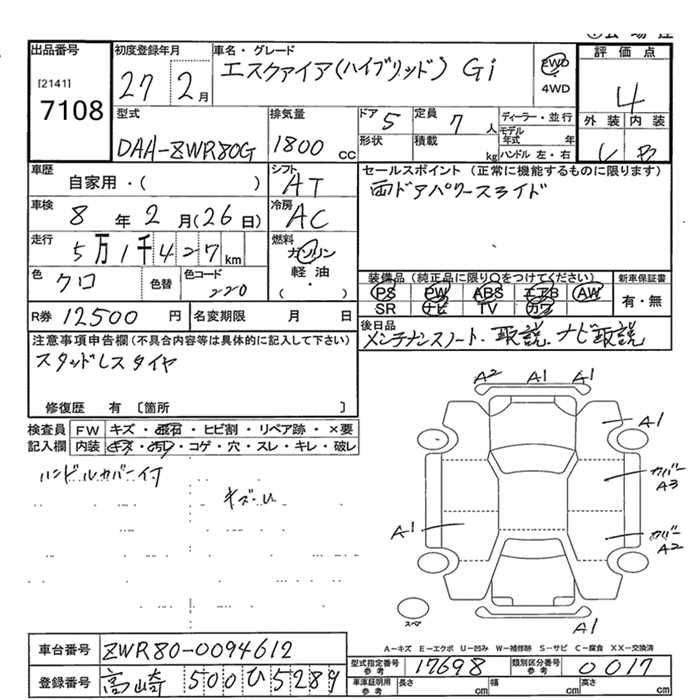 出品番号
[2141]
7108
初度登録年月
27 2月
車名・グレード
エスクァイア(ハイブリッド) Gi
2WD
4WD
評価点
4
外装 内装
B
型式
DAA-ZWR80G
排気量
1800 cc
ドア 5
形状
定員 7 人
積載 kg
ディーラー・並行
モデル年式 年
ハンドル 左・右
車歴
自家用・( )
シフト
AT
車検
8年2月(26日)
冷房
AC
走行
5万1千427km
燃料
ガソリン
軽油
( ・ )
色
クロ
色替
色コード
220
R券 12500円
名変期限 月 日
セールスポイント(正常に機能するものに限ります)
両ドアパワースライド
装備品(純正品に限り○をつけてください)
PS PW ABS エアB AW
SR ナビ TV カワ
新車保証書
有・無
後日品
メンテナンスノート・取説、ナビ取説
注意事項申告欄(不具合内容等は具体的に記入して下さい)
スタッドレスタイヤ
修復歴 有[箇所 ]
検査員記入欄
FW キズ・飛石・ヒビ割・リペア跡・×要
内装 キズ・汚レ・コゲ・穴・スレ・キレ・破レ
ハンドルカバー付
A2 A1 A1
A1
カバー
A3
カバー
A2
A1
スペア
A1
A-キズ E-エクボ U-凹み W-補修跡 S-サビ C-腐食 XX-交換済
車台番号 ZWR80-0094612
登録番号 高崎 500 ひ 5289
型式指定番号 参考 17698
類別区分番号 参考 0017
車庫証明用 参考 長さ cm 幅 cm 高さ cm